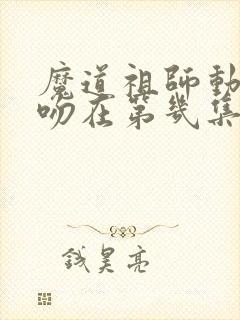 魔道祖師動
吻在第幾集
錢昊亮